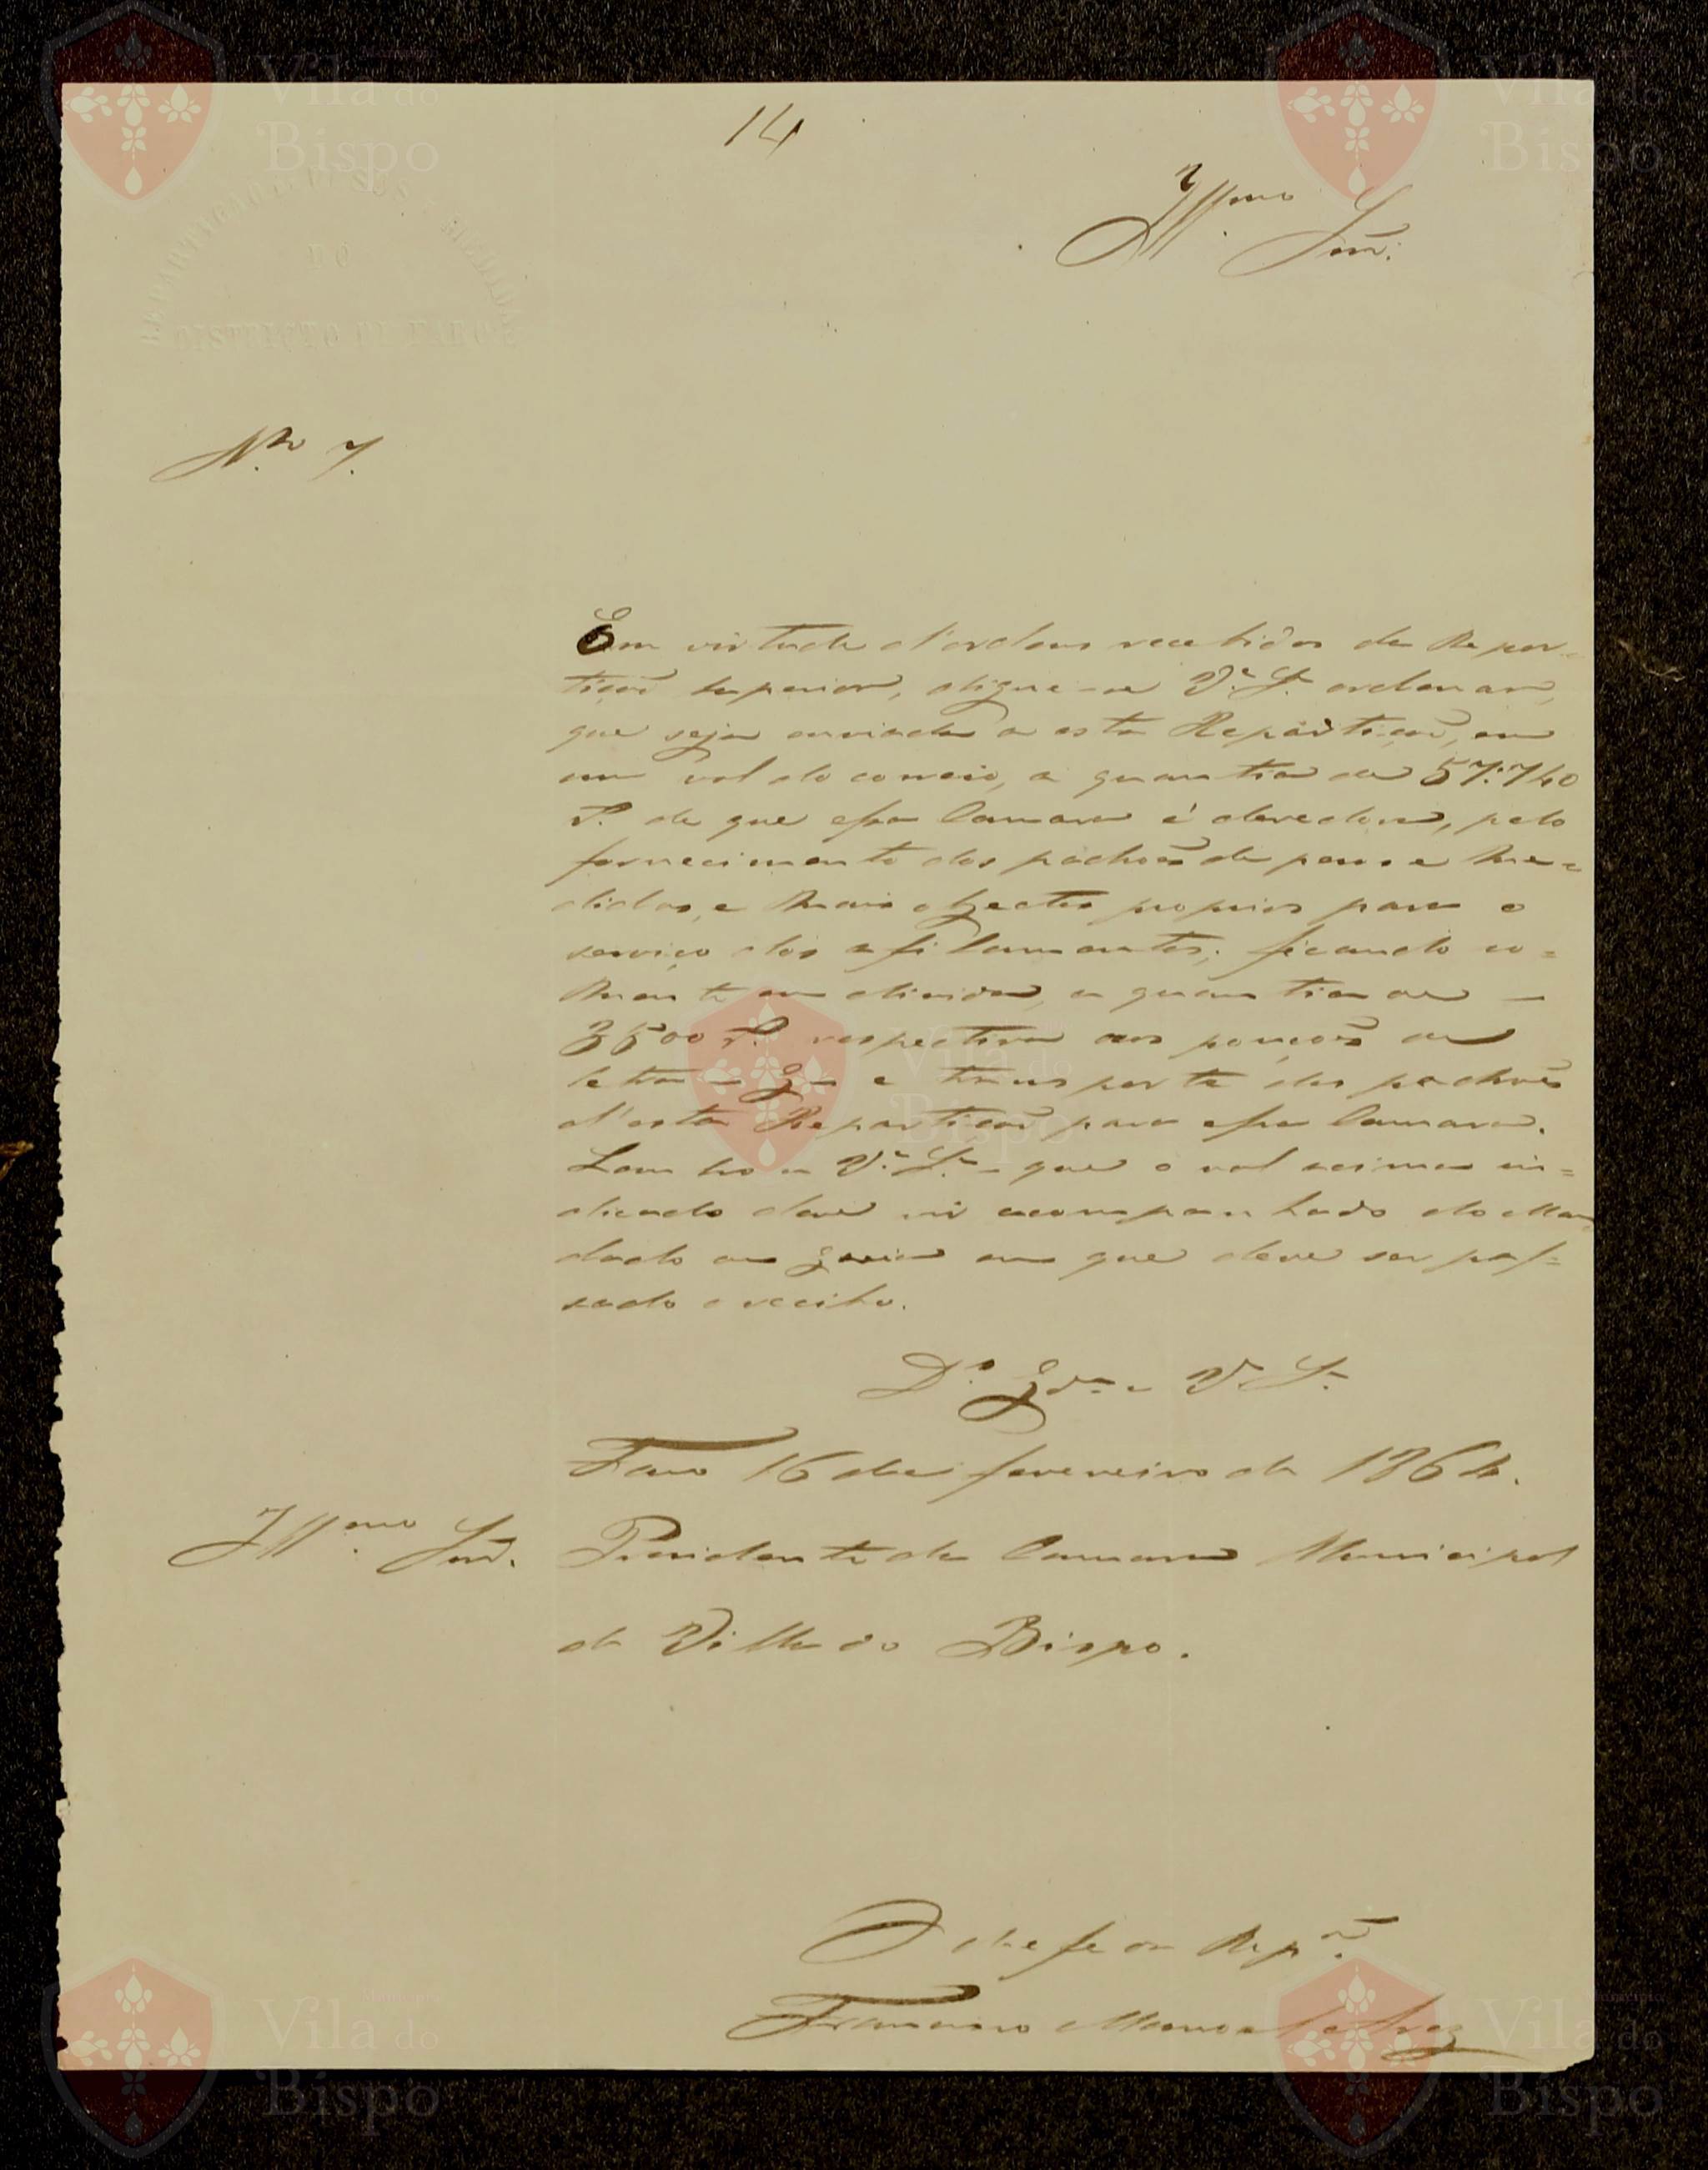 14
Illmo Snr.
REPARTIÇÃO DE PESOS E MEDIDAS
DO
DISTRICTO DE FARO
No 7.
Em virtude d'ordens recebidas da Repar-
tição superior, digne-se V.ª S.ª ordenar,
que seja enviada a esta Repartição, em
um val do correio, a quantia de 57:740
r.s de que essa Camara é devedora, pelo
fornecimento dos padrões de pesos e me=
didas, e mais objectos proprios para o
serviço dos afilamentos; ficando so=
mente em divida, a quantia de —
3500 r.s respectiva aos ponções da
letra — g — e transporte dos padrões
d'esta Repartição para essa Camara.
Lembro a V.ª S.ª — que o val acima in=
dicado deve vir acompanhado do Man
dado ou guia em que deve ser pas=
sado o recibo.
D.s g.de a V. S.ª
Faro 16 de fevereiro de 1864.
Illmo Snr. Presidente da Camara Municipal
da Villa do Bispo.
O chefe da Rep.ão
Francisco Manoel Alvez
Vila do
Bispo
Vila do
Bispo
Vila do
Bispo
Vila do
Bispo
Vila do
Bispo